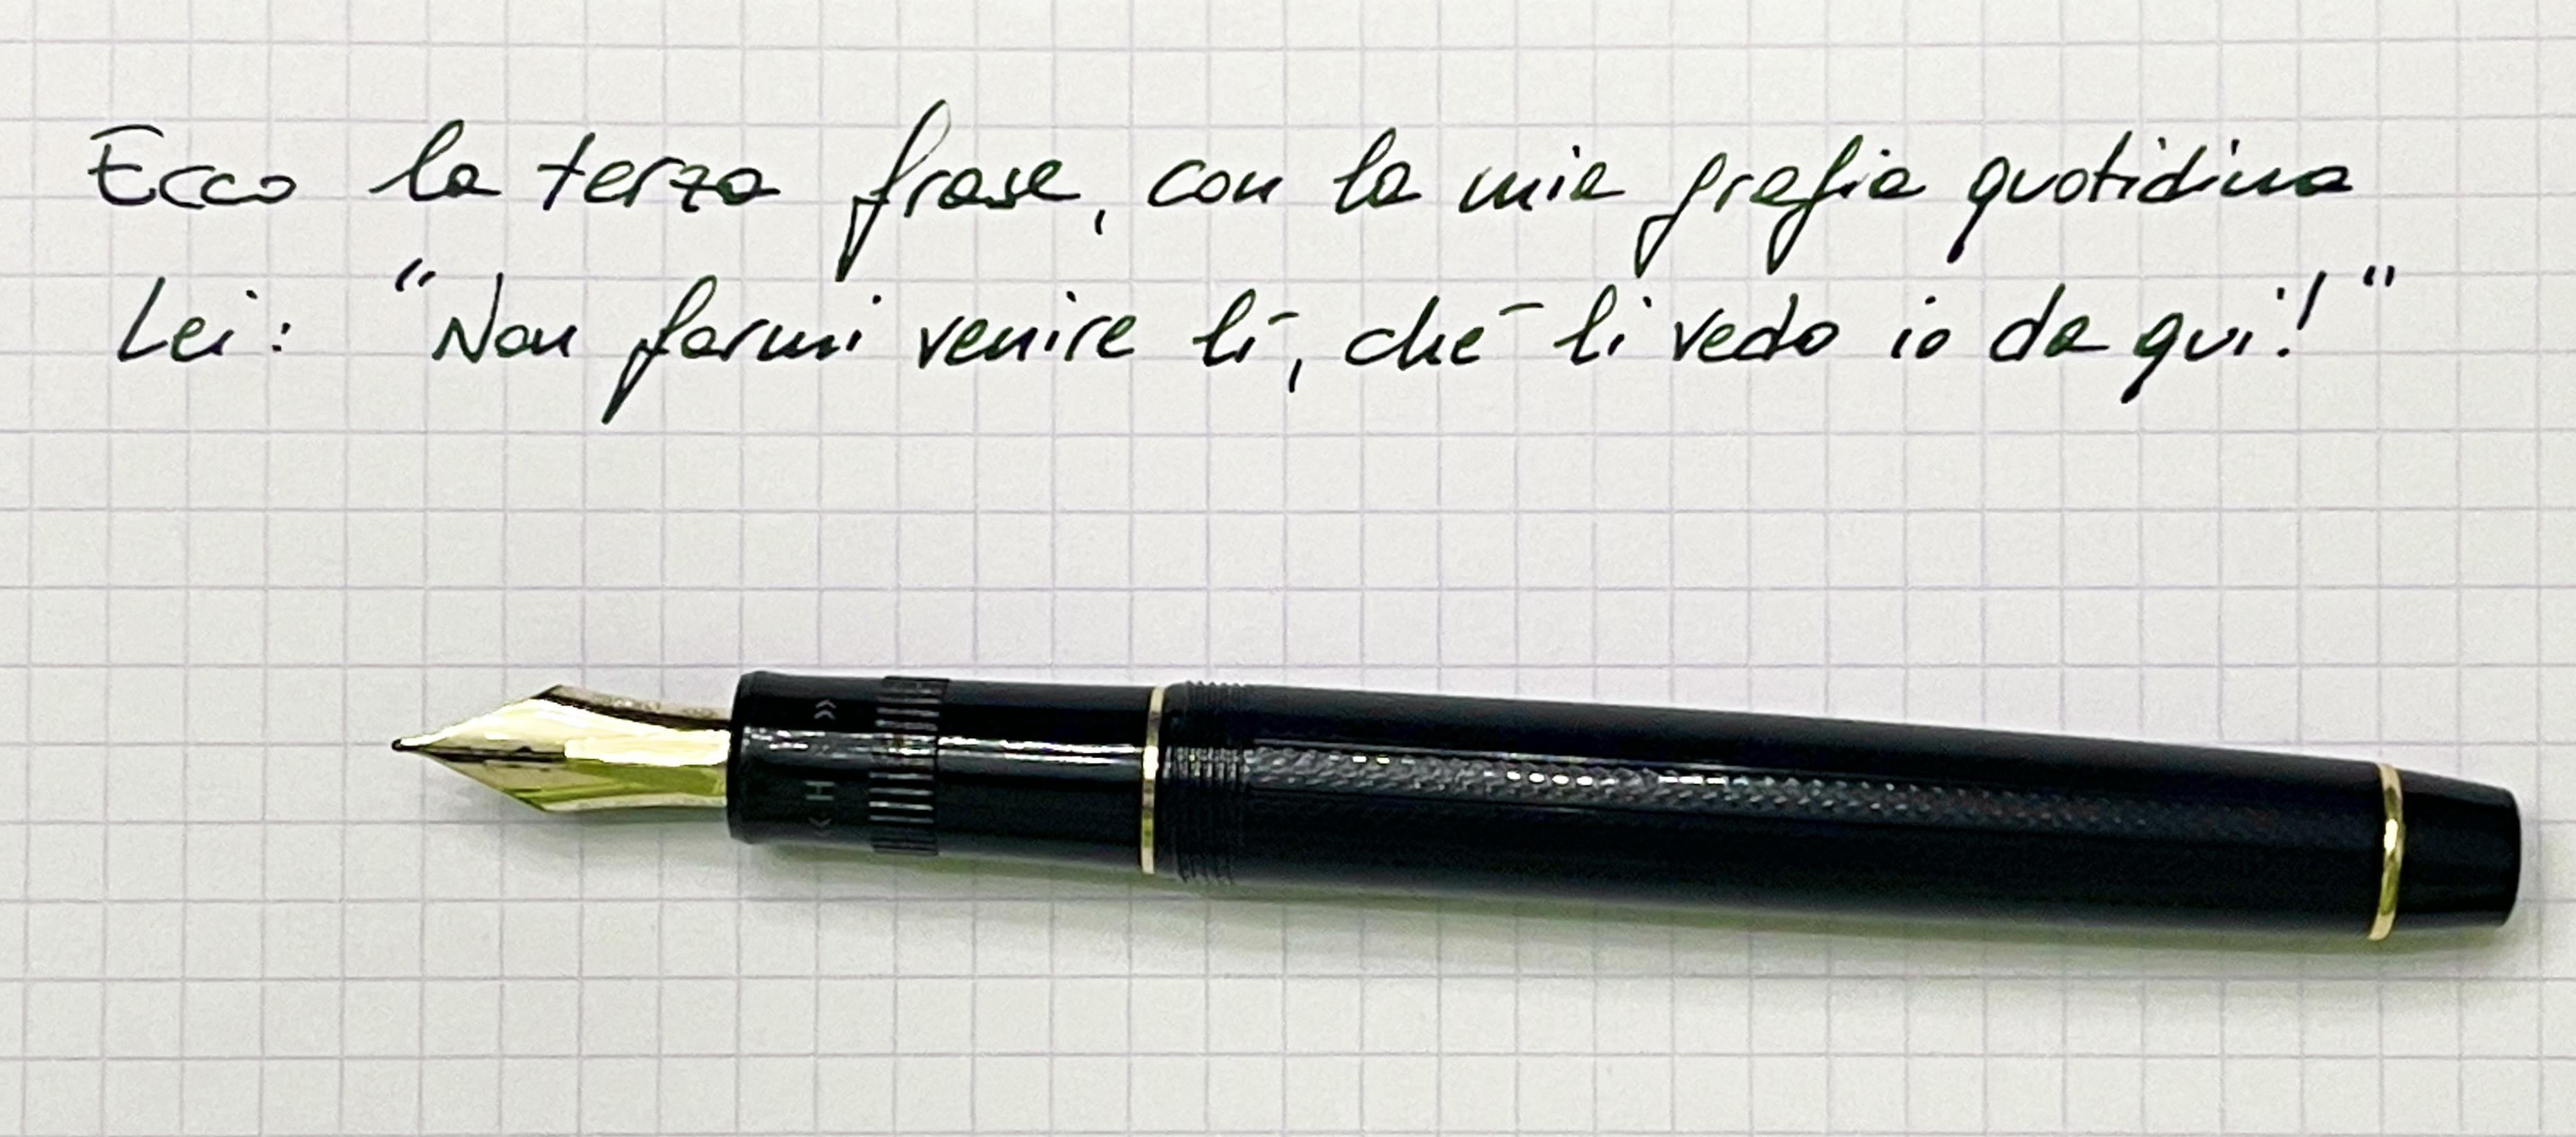 Ecco la terza frase, con la mia grafia quotidina
Lei: "Non farmi venire lì, ché li vedo io da qui!"
« H »